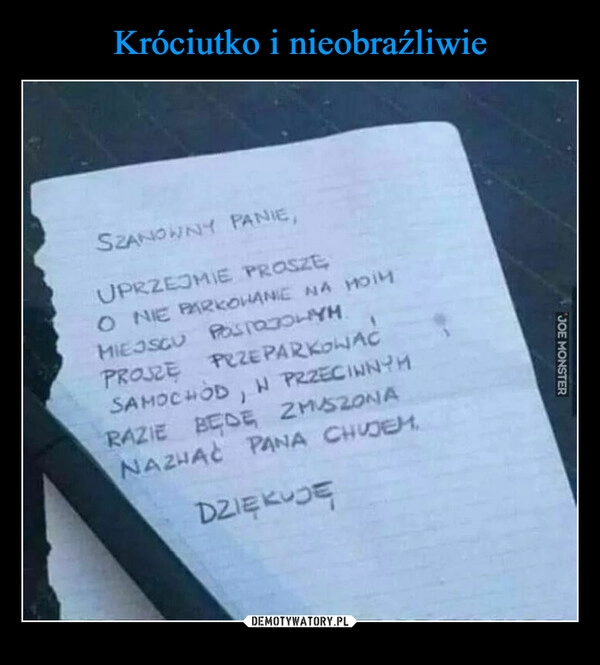 Króciutko i nieobraźliwie
SZANOWNY PANIE,
UPRZEJMIE PROSZĘ
O NIE PARKOWANIE NA MOIM
MIEJSCU POSTOJOWYM.
PROSZĘ PRZEPARKOWAĆ
SAMOCHÓD, W PRZECIWNYM
RAZIE BĘDĘ ZMUSZONA
NAZWAĆ PANA CHUJEM.
DZIĘKUJĘ
JOE MONSTER
DEMOTYWATORY.PL